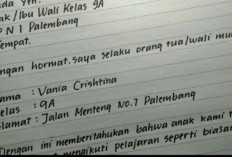 Yth.
ak/Ibu Wali Kelas 9A
P N 1 Palembang
Tempat.
ngan hormat, saya selaku orang tua/wali mu
ama : Vania Crishtina
elas : 9A
lamat : Jalan Menteng No.7 Palembang
Dengan ini memberitahukan bahwa anak kami t
mengikuti pelajaran seperti biasan